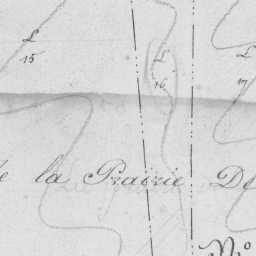 L
15
L
16
L
17
la Prairie De
N°